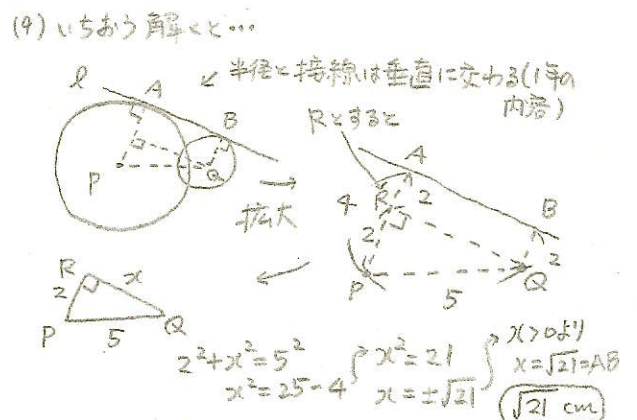 (4) いちおう解くと…
↙ 半径と接線は垂直に交わる(1年の
内容)
l A
B
P Q
拡大
Rとすると
A
4 R 2
2
B
2
P 5 Q
R
2 x
P 5 Q
2²+x²=5²
x²=25-4
x²=21
x=±√21
x>0より
x=√21=AB
√21 cm